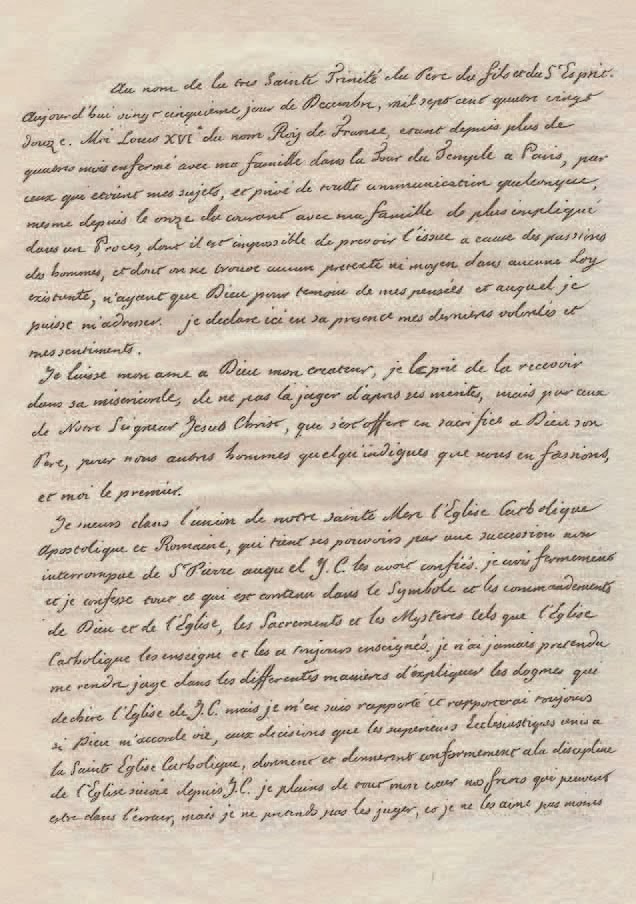 Au nom de la tres Sainte Trinité du Pere du fils et du St Esprit.
Aujourd'hui vingt cinquieme jour de Decembre, mil sept cent quatre vingt
douze. Moi Louis XVIe du nom Roy de France, etant depuis plus de
quatres mois enfermé avec ma famille dans la Tour du Temple a Paris, par
ceux qui etoient mes sujets, et privé de toutte communication quelconque,
mesme depuis le onze du courant avec ma famille de plus impliqué
dans un Proces, dont il est impossible de prevoir l'issue a cause des passions
des hommes, et dont on ne trouve aucun pretexte ni moyen dans aucune Loy
existante, n'ayant que Dieu pour temoin de mes pensées et auquel je
puisse m'adresser. je declare ici en sa presence mes dernieres volontés et
mes sentiments.
Je laisse mon ame a Dieu mon createur, je le prie de la recevoir
dans sa misericorde, de ne pas la juger d'apres ses merites, mais par ceux
de Notre Seigneur Jesus Christ, qui s'est offert en sacrifice a Dieu son
Pere, pour nous autres hommes quelqu'indignes que nous en fussions,
et moi le premier.
Je meurs dans l'union de notre sainte Mere l'Eglise Catholique
Apostolique et Romaine, qui tient ses pouvoirs par une succession non
interrompue de St Pierre auquel J.C. les avoit confiés. je crois fermement
et je confesse tout ce qui est contenu dans le Symbole et les commandements
de Dieu et de l'Eglise, les Sacrements et les Mysteres tels que l'Eglise
Catholique les enseigne et les a toujours enseignés. je n'ai jamais pretendu
me rendre juge dans les differentes manieres d'expliquer les dogmes qui
dechire l'Eglise de J.C. mais je m'en suis rapporté et rapporterai toujours
si Dieu m'accorde vie, aux decisions que les superieurs Ecclesiastiques unis a
la Sainte Eglise Catholique, donnent et donneront conformement a la discipline
de l'Eglise suivie depuis J.C. je plains de tout mon cœur nos freres qui peuvent
estre dans l'erreur, mais je ne pretends pas les juger, et je ne les aime pas moins